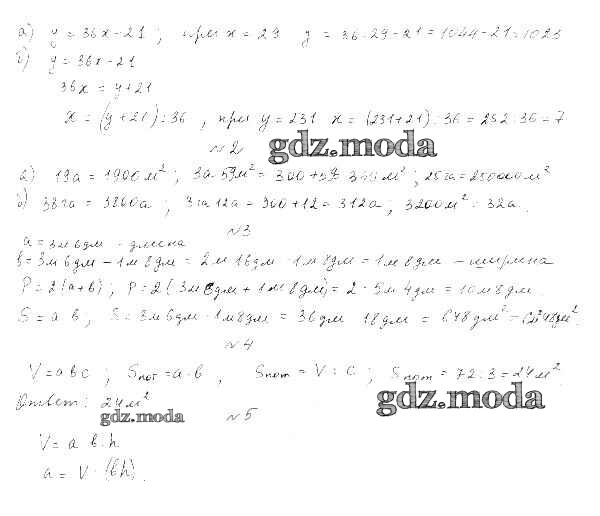 а) y = 36x - 21 ; при x = 29 y = 36·29 - 21 = 1044 - 21 = 1023
б) y = 36x - 21
36x = y + 21
x = (y + 21) : 36 , при y = 231 x = (231 + 21) : 36 = 252 : 36 = 7
№2
gdz.moda
а) 19а = 1900м² ; 3а 59м² = 300 + 59 = м² ; 25га = 250000м²
б) 38га = 3800а ; 3га 12а = 300 + 12 = 312а , 3200м² = 32а.
№3
a = 3м 6дм - длина
b = 3м 6дм - 1м 8дм = 2м 16дм - 1м 8дм = 1м 8дм - ширина
P = 2(a + b) ; P = 2(3м 6дм + 1м 8дм) = 2 · 5м 4дм = 10м 8дм.
S = a b , S = 3м 6дм · 1м 8дм = 36дм 18дм = 648дм² =
№4
V = abc ; Sпот = a·b , Sпот = V : c ; Sпот = 72 : 3 = 24м²
Ответ: 24м²
gdz.moda
gdz.moda
№5
V = a b·h
a = V : (bh).